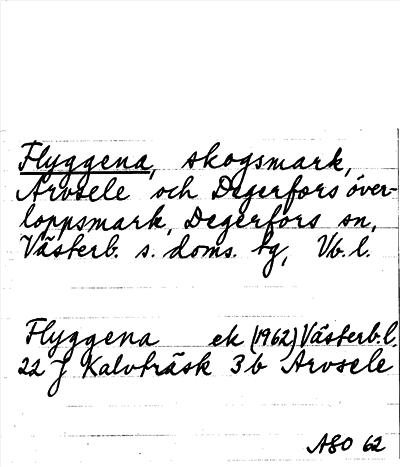 Flyggena, skogsmark,
Arvsele och Degerfors över-
loppsmark, Degerfors sn,
Västerb. s. doms. tg, Vb. l.
Flyggena ek (1962) Västerb. l.
22 J Kalvträsk 3b Arvsele
ASO 62